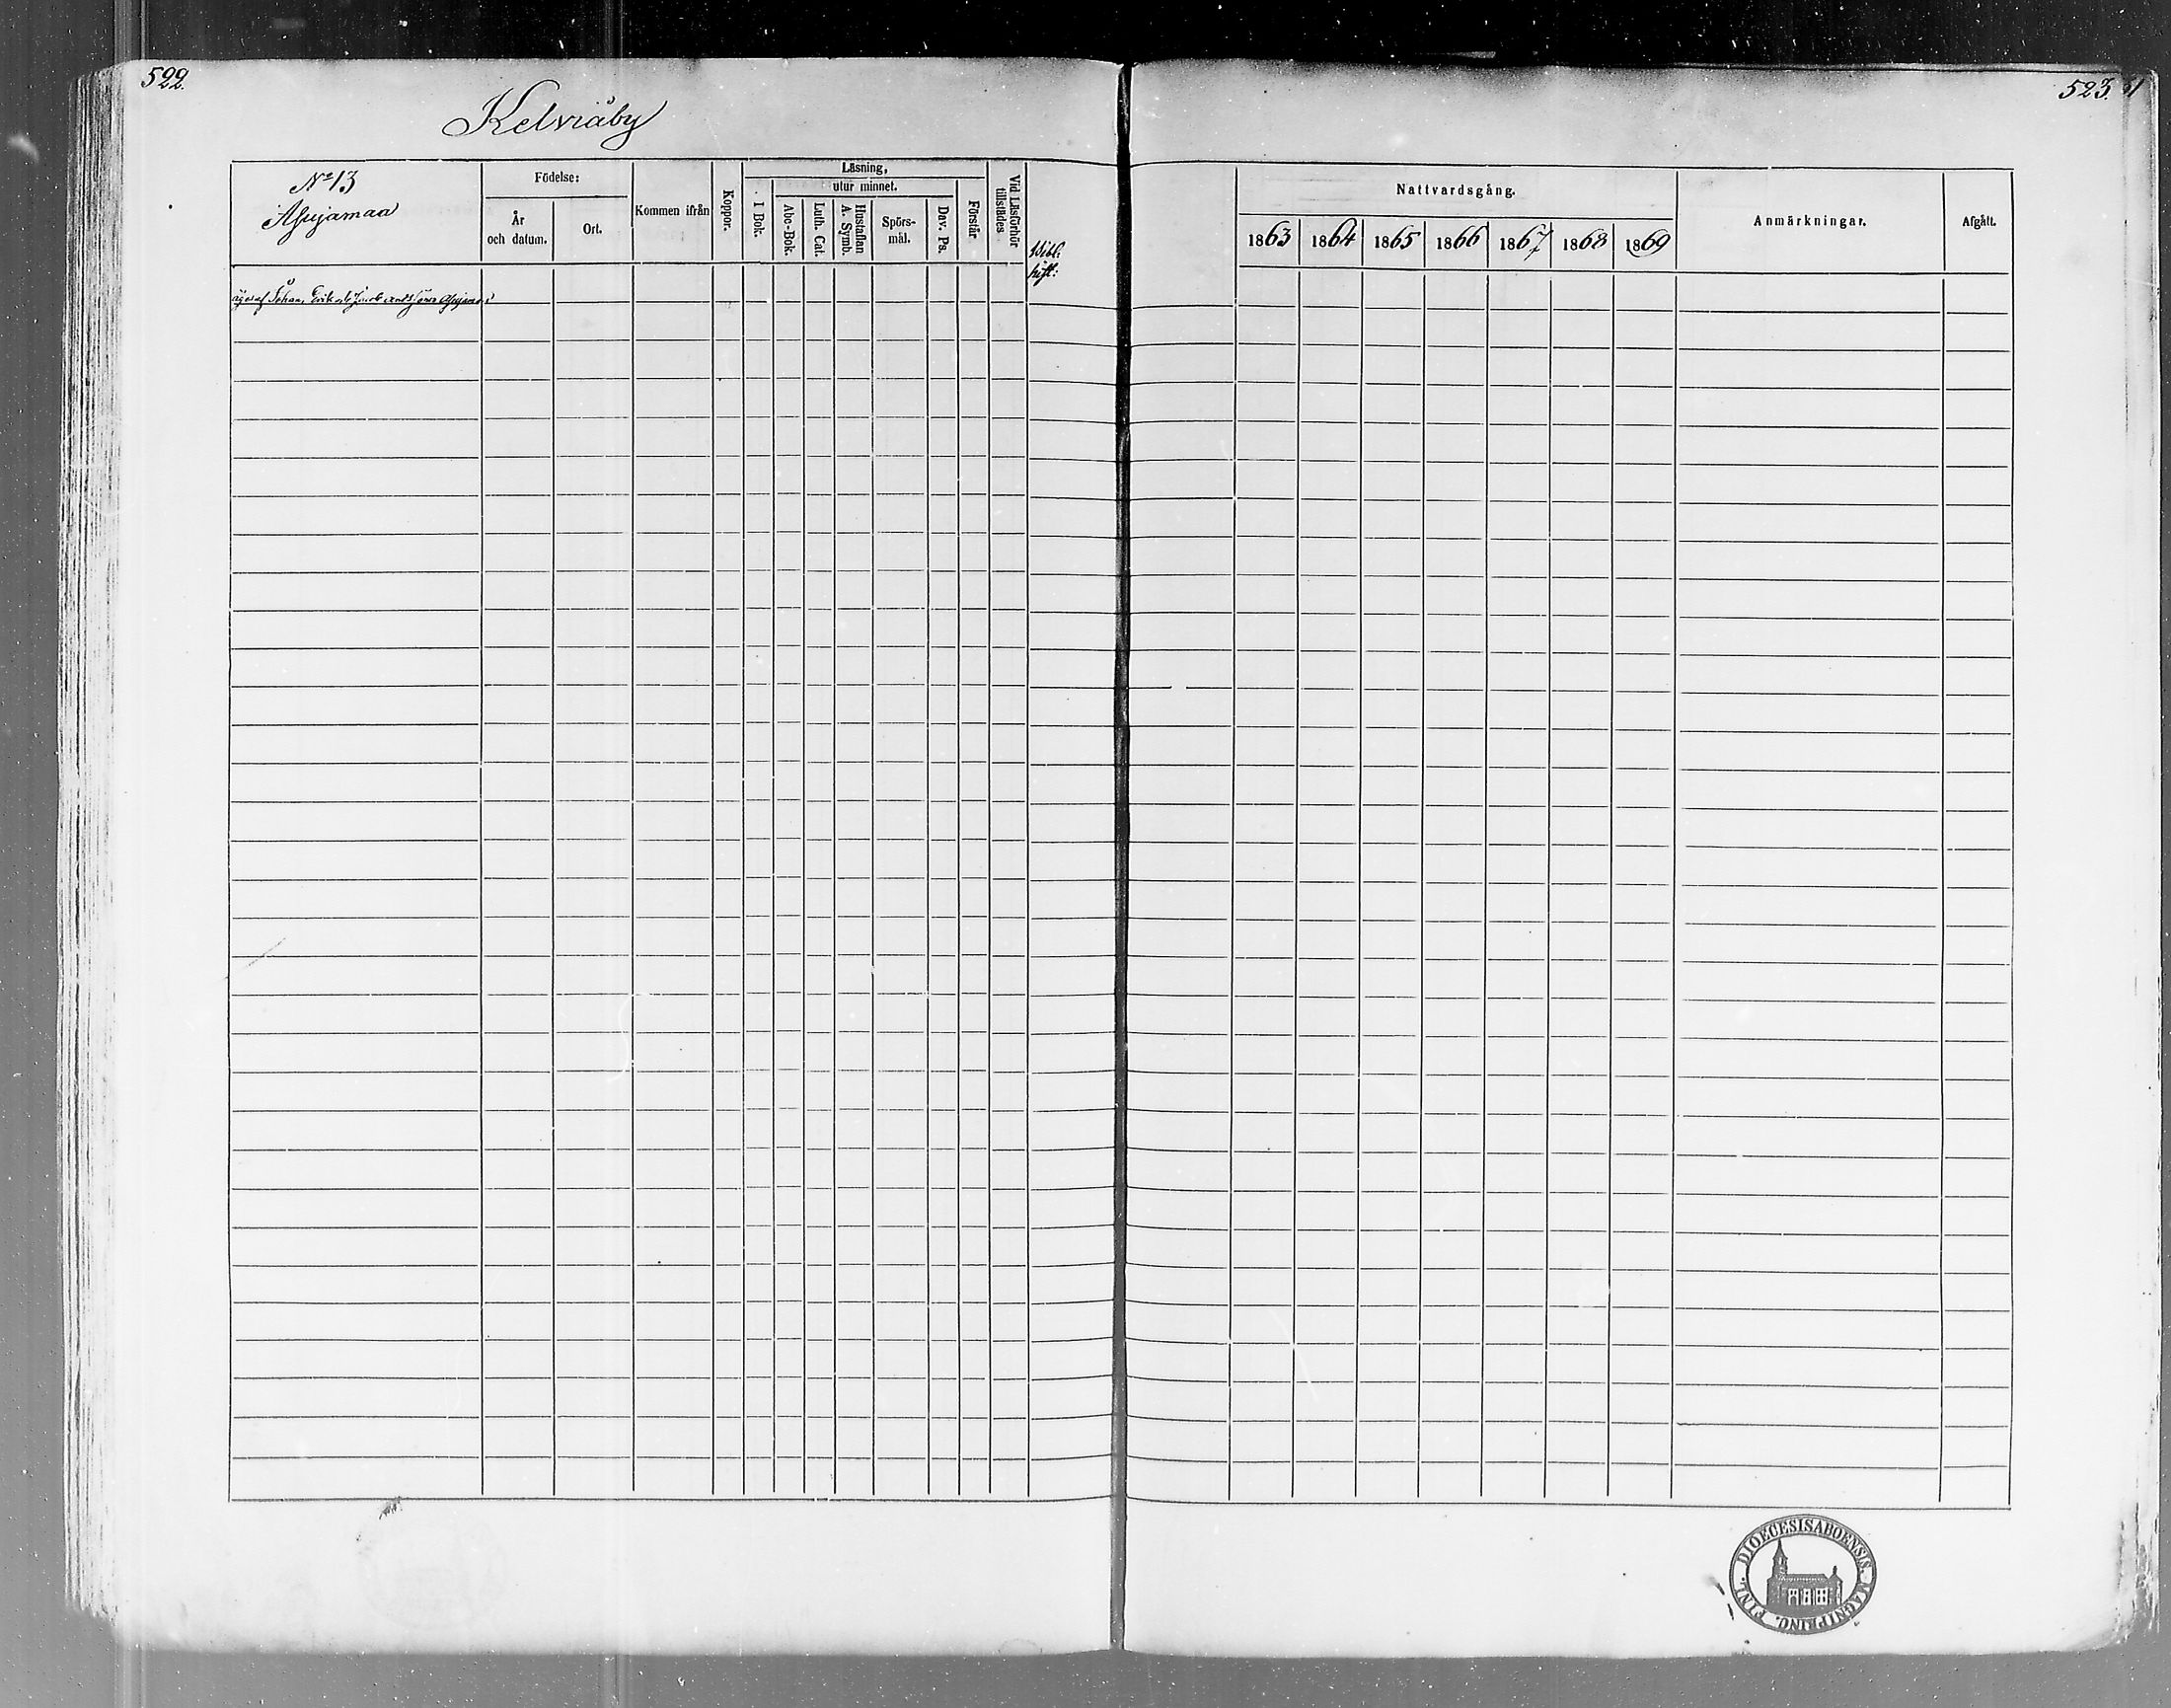 522.
Kelviåby
No 13
Asujamaa
Födelse:
År
och datum.
Ort.
Kommen ifrån
Koppor.
Läsning,
utur minnet.
I Bok.
Abc-Bok.
Luth. Cat.
Hustaflan
A. Symb.
Spörs-
mål.
Dav. Ps.
Förstår.
Vid Läsförhör
tillstädes
Bibl:
hist:
äges af Johan, Erik o Jacob
523.
Nattvardsgång.
1863 1864 1865 1866 1867 1868 1869
Anmärkningar.
Afgått.
DIOECESIS ABOENSIS. MAGNI PRINC. FINL.